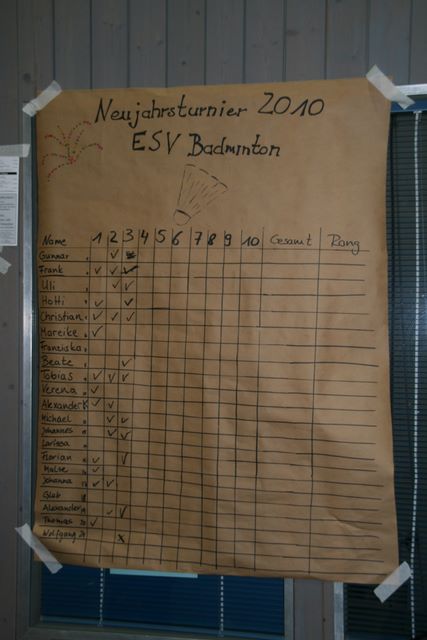 Neujahrsturnier 2010
ESV Badminton
Name 1 2 3 4 5 6 7 8 9 10 Gesamt Rang
Gunnar
Frank
Uli
Hotti
Christian
Mareike
Franziska
Beate
Tobias
Verena
Alexander
Michael
Johannes
Larissa
Florian
Malte
Johanna
Gleb
Alexander
Thomas 20
Wolfgang 21